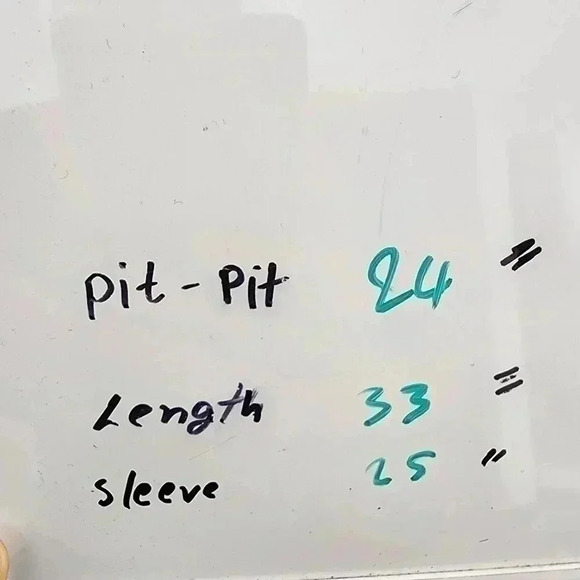 pit - Pit 24 "
Length 33 "
sleeve 25 "